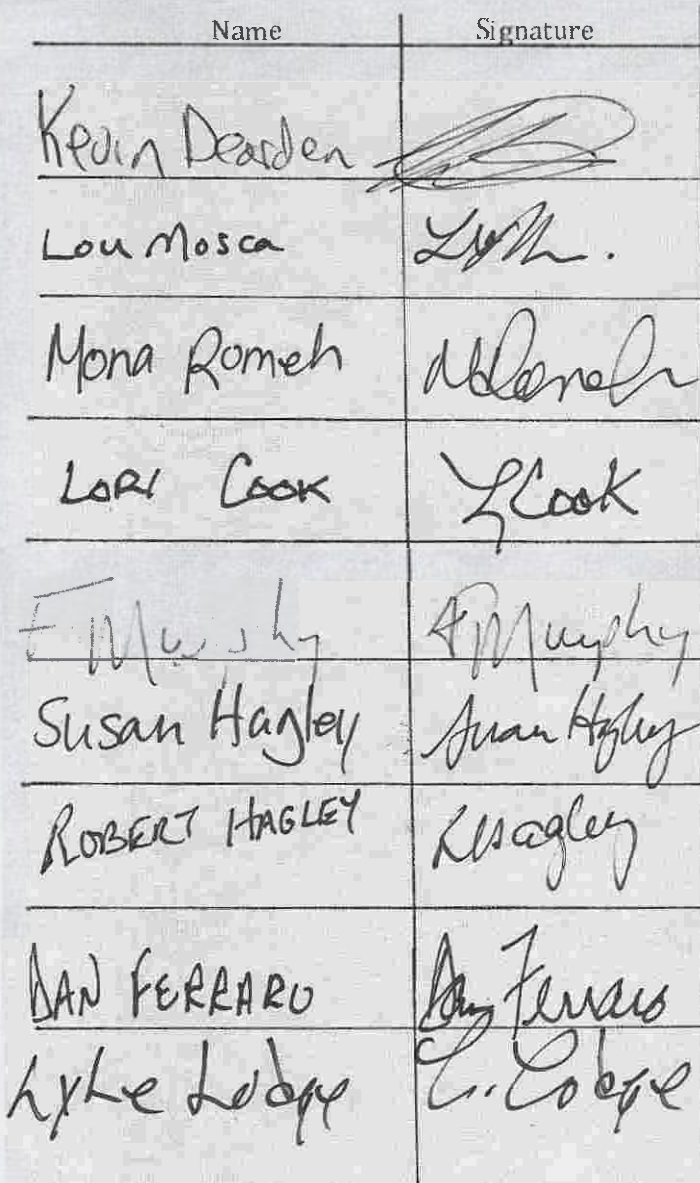 Name Signature
Kevin Dearden
Lou Mosca
Mona Romeh MRomeh
LORI COOK L Cook
F Murphy F Murphy
Susan Hagley Susan Hagley
ROBERT HAGLEY RHagley
DAN FERRARO Dan Ferraro
Lyle Lodge L. Lodge